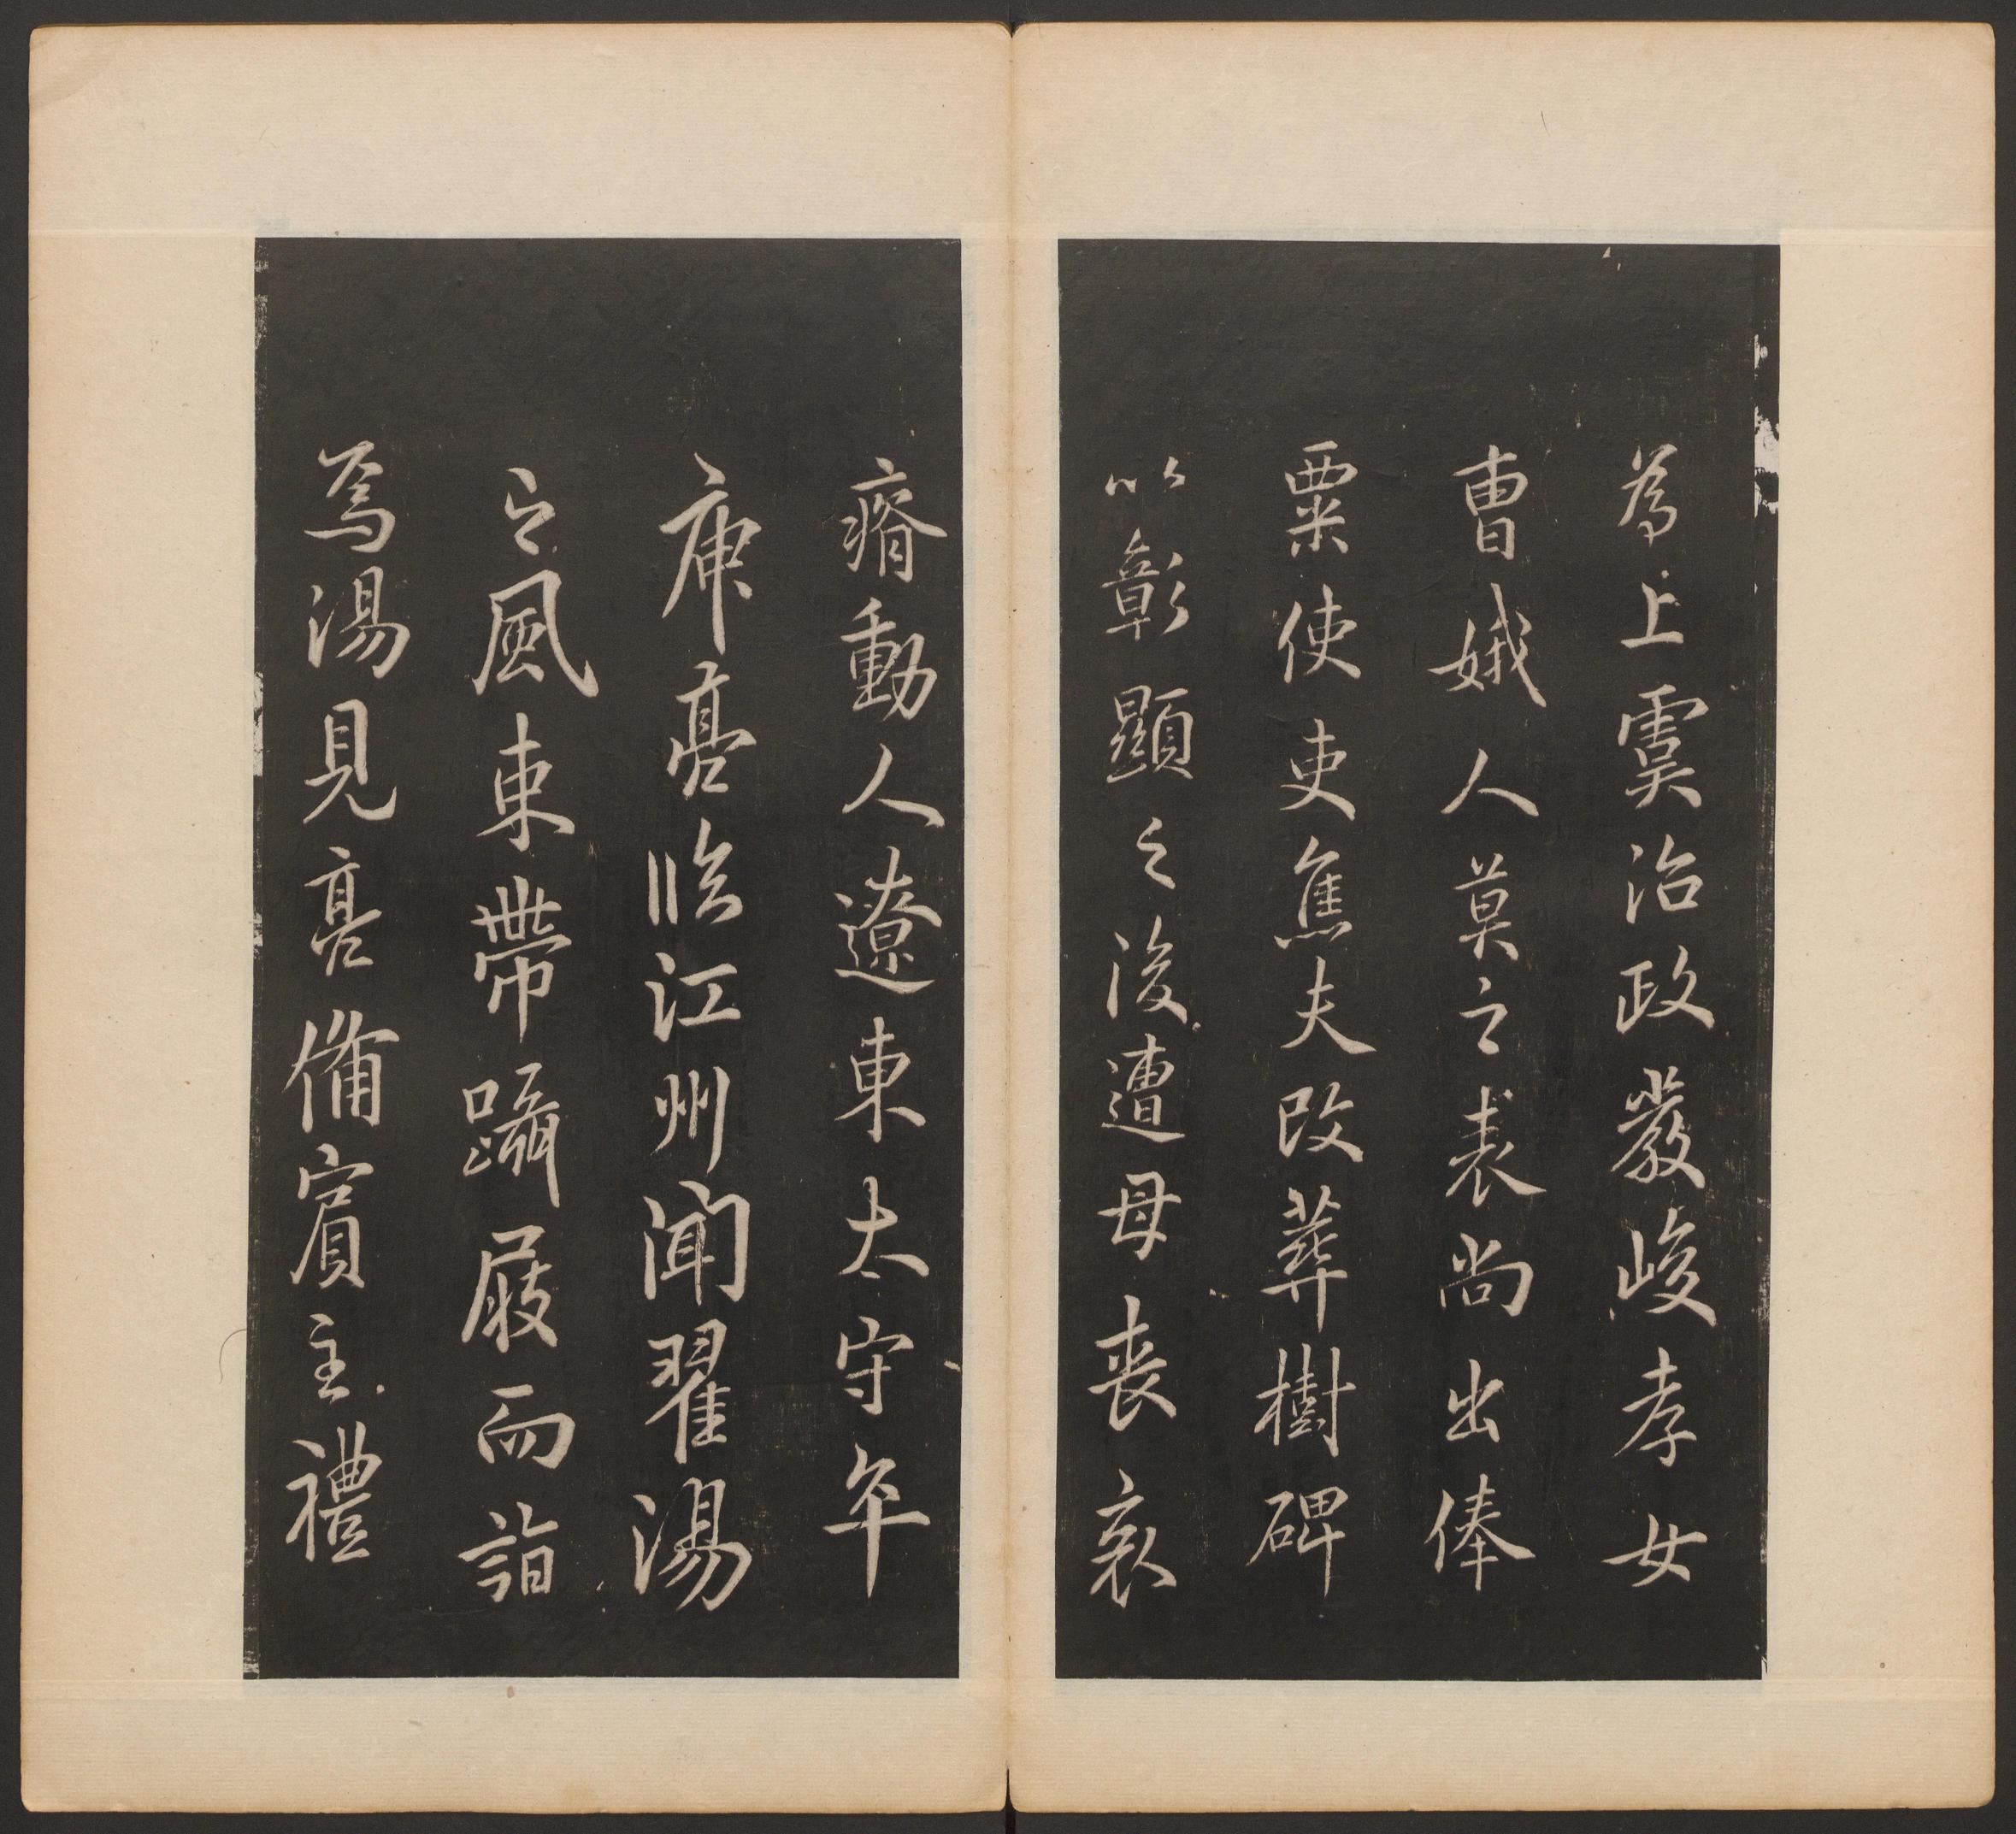 為上虞治政嚴峻孝女
曹娥人莫之表尚出俸
粟使吏焦夫改葬樹碑
以彰顯之後遭母喪哀
瘠動人遼東太守卒
庾亮臨江州聞翟湯
之風束帶躡屐而詣
焉湯見亮備賓主禮